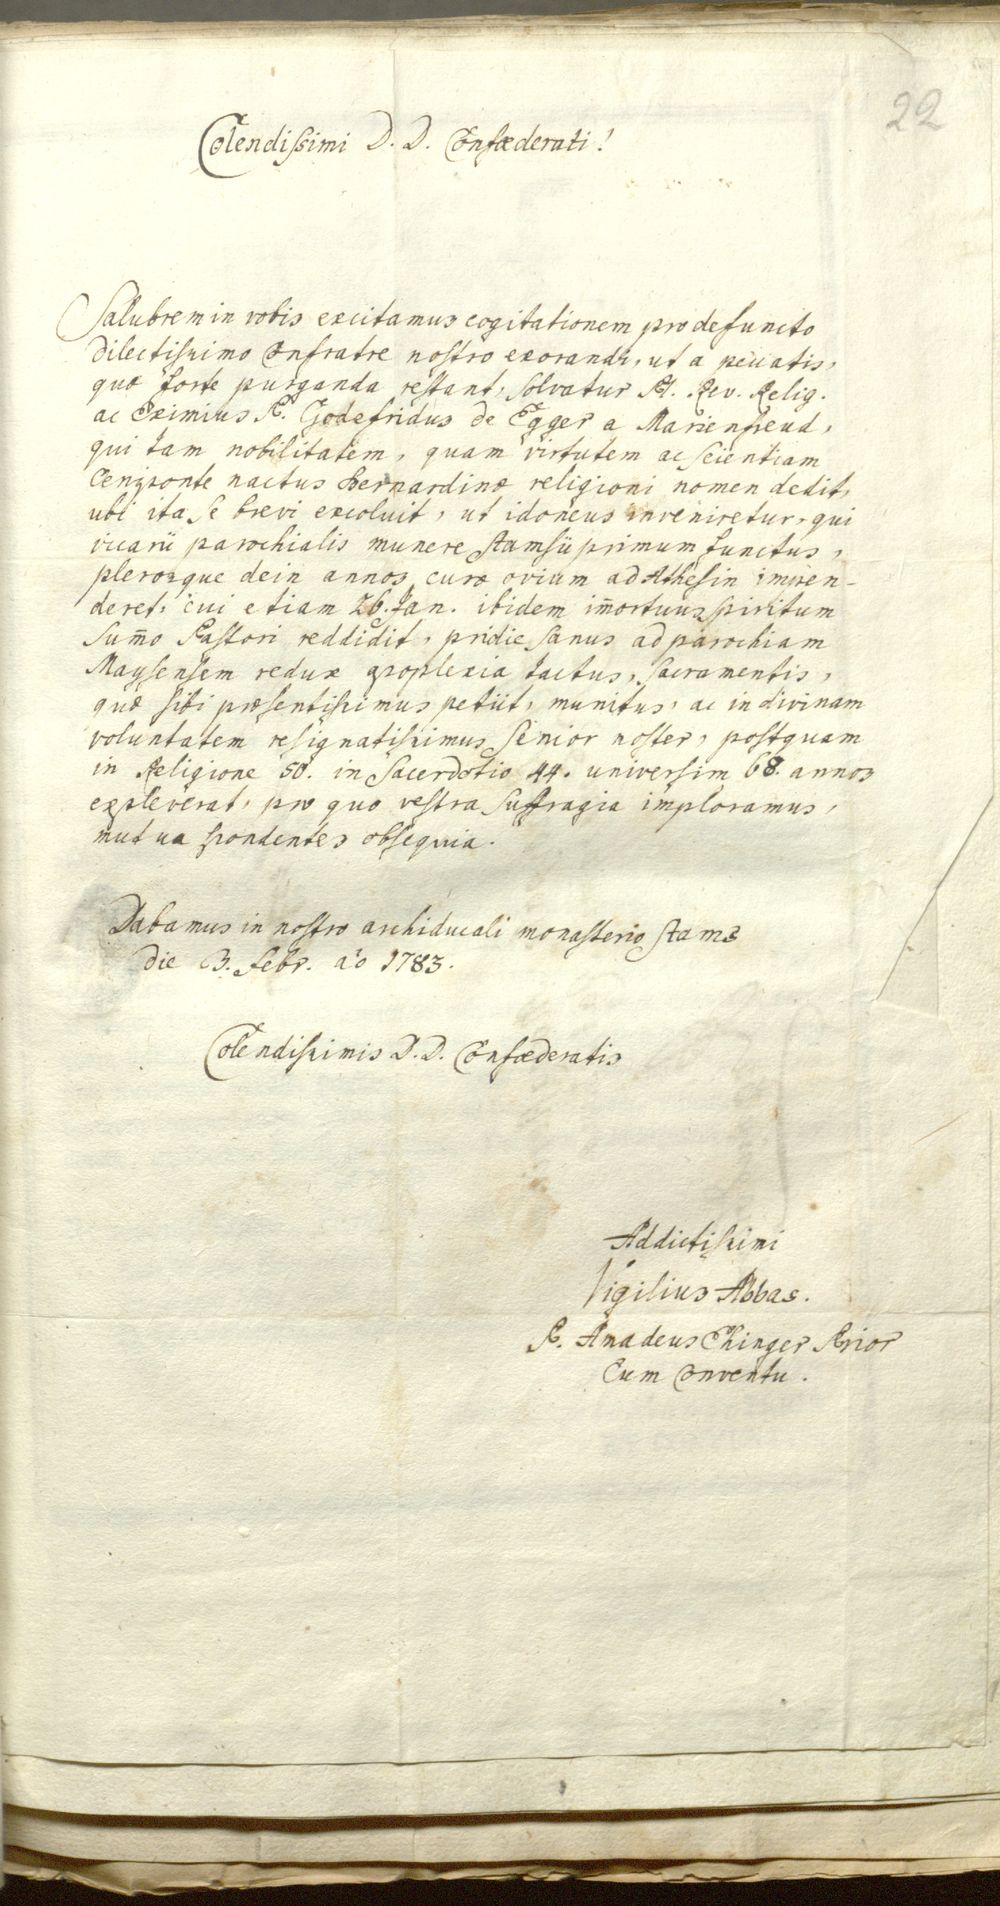 22
Colendissimi D. D. Confœderati!
Salubrem in vobis excitamus cogitationem pro defuncto
dilectissimo Confratre nostro exorandi, ut a peccatis,
quæ forte purganda restant, solvatur A. Rev. Relig.
ac Eximius P. Godefridus de Egger a Marienfreud,
qui tam nobilitatem, quam virtutem ac scientiam
Oeniponte nactus Bernardinæ religioni nomen dedit,
ubi ita se brevi excoluit, ut idoneus inveniretur, qui
vicarii parochialis munere Stamsii primum functus,
plerosque dein annos curæ ovium ad Athesin impen-
deret, cui etiam 26. Jan. ibidem im̄ortuus spiritum
sum̄o Pastori reddidit, pridie sanus ad parochiam
Maysensem redux apoplexia tactus, sacramentis,
quæ sibi præsentissimus petiit, munitus, ac in divinam
voluntatem resignatissimus Senior noster, postquam
in Religione 50. in Sacerdotio 44. universim 68. annos
expleverat, pro quo vestra suffragia imploramus,
mutua spondentes obsequia.
Dabamus in nostro archiducali monasterio Stams
die 3. Febr. a͞o 1783.
Colendissimis D. D. Confœderatis
Addictissimi
Vigilius Abbas.
P. Amadeus Ehinger Prior
Cum Conventu.